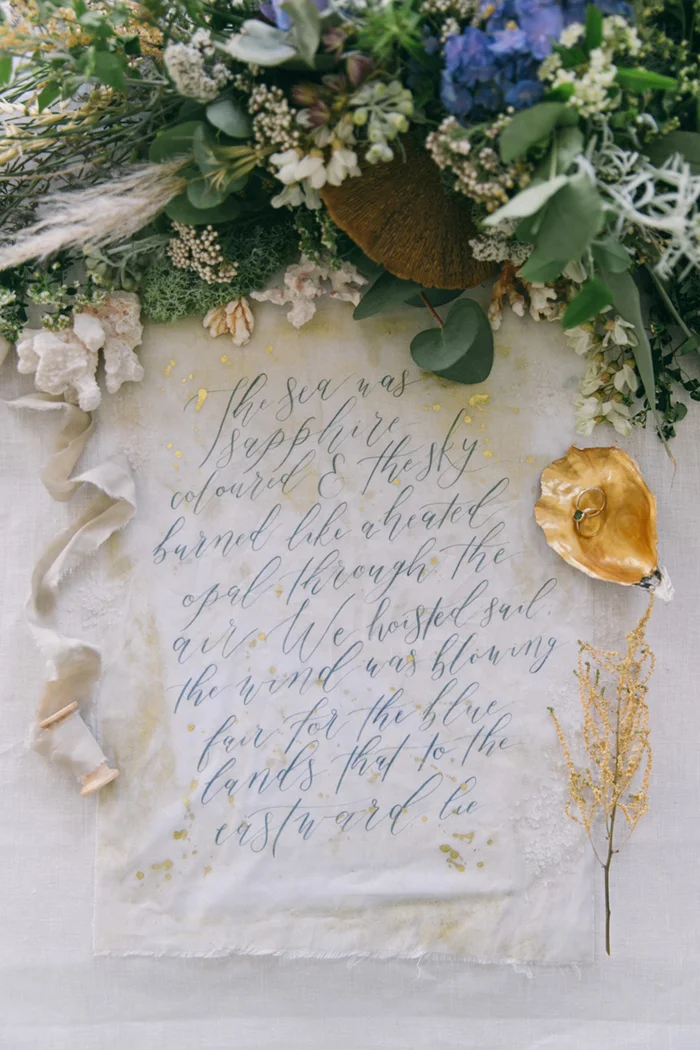 The sea was
sapphire
coloured & the sky
burned like a heated
opal through the
air We hoisted sail.
the wind was blowing
fair for the blue
lands that to the
eastward lie